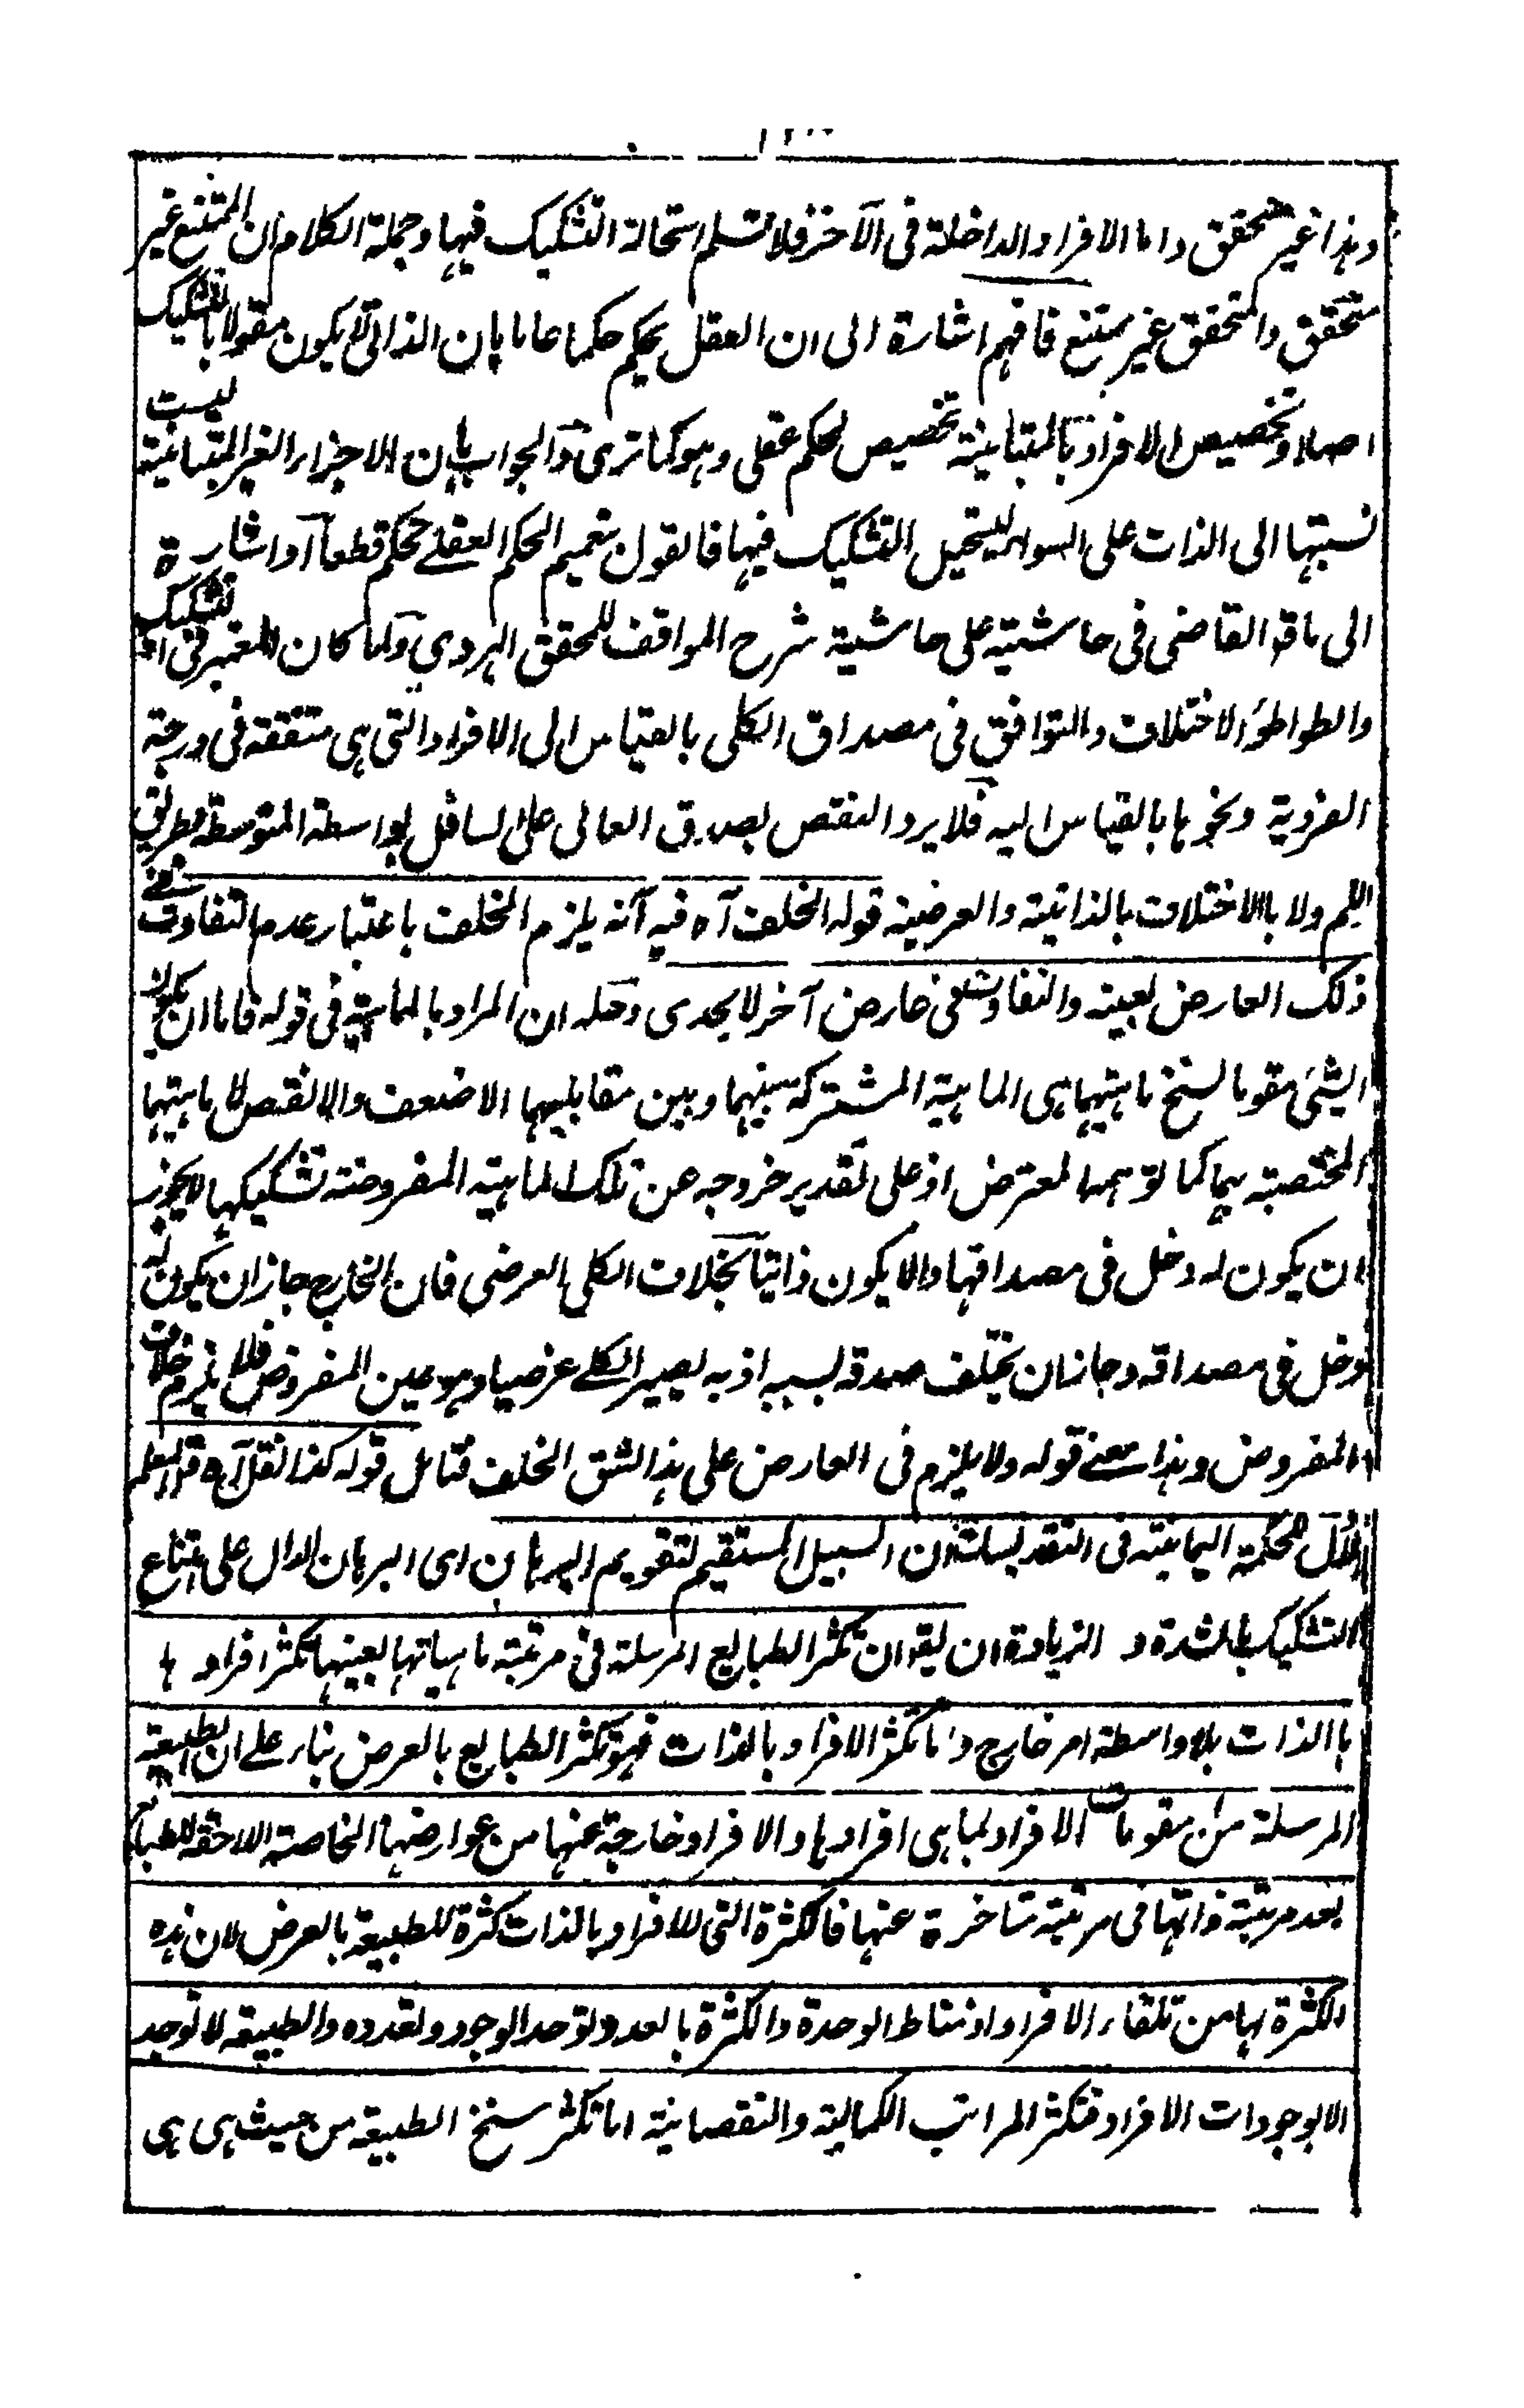 وهذا غير متحقق واما الافراد الداخلة فى الآخر فلا نسلم استحالة التشكيك فيها وجملة الكلام ان الممتنع غير
متحقق والمتحقق غير ممتنع فافهم اشارة الى ان العقل يحكم حكما عاما بان الذاتى لا يكون مقولا بالتشكيك
اصلا وتخصيص الافراد بالمتباينة تخصيص لحكم عقلى وهو كما ترى والجواب بان الاجزاء الغير المتباينة ليست
نسبتها الى الذات على السواء ليستحيل التشكيك فيها فالقول بتعميم الحكم العقلے تحكم قطعا آو اشارة
الى ما قه القاضى فى حاشيته على حاشية شرح المواقف للمحقق الهروى ولما كان المعتبر فى التشكيك
والطواطؤ الاختلاف والتوافق فى مصداق الكلى بالقياس الى الافراد التى هى متفقة فى درجة
الفردية ونحوها بالقياس اليه فلا يرد النقض بصدق العالى على السافل بواسطة المتوسط بطريق
اللم ولا بالاختلاف بالذاتية والعرضية قوله الخلف آه فيه آنه يلزم الخلف باعتبار عدم التفاوت فے
ذلك العارض بعينه والتفاوت فى عارض آخر لا يجدى وحله ان المراد بالماهية فى قوله فاما ان يكون
الشئ مقوما لسنخ ماهيتهما هى الماهية المشتركة بينهما وبين مقابليهما الاضعف والانقص لا ماهيتهما
المختصة بهما كما توهمه المعترض اذ على تقدير خروجه عن تلك الماهية المفروضة تشكيكها لا يجوز
ان يكون له دخل فى مصداقها والا يكون ذاتيا بخلاف الكلى العرضى فان الخارج جاز ان يكون له
دخل فى مصداقه وجاز ان يختلف صدقه بسببه اذ به يصير الكلے عرضيا وهو عين المفروض فلا يلزم خلاف
المفروض وهذا معنے قوله ولا يلزم فى العارض على هذا الشق الخلف فتامل قوله كذا نقل آه قال المعلم
الاول للحكمة اليمانية فى التقديسات ان السبيل المستقيم لتقويم البرهان اى البرهان الدال على امتناع
التشكيك بالشدة و الزيادة ان يقو ان تكثر الطبايع المرسلة فى مرتبة ماهياتها بعينها تكثر افراد ها
باالذات بلا واسطة امر خارج واما تكثر الافراد بالذات فهو تكثر الطبايع بالعرض بناء علے ان الطبيعة
المرسلة من مقومات الافراد بما هى افرادها والافراد خارجة عنها من عوارضها الخاصة اللاحقة للطباع
بعد مرتبة ذاتها فى مرتبة متاخرة عنها فالكثرة التى للافراد بالذات كثرة للطبيعة بالعرض لان هذه
الكثرة لها من تلقاء الافراد اذ مناط الوحدة والكثرة بالعدد توحد الوجود وتعدده والطبيعة لا توجد
الا بوجودات الافراد فتكثر المراتب الكمالية والنقصانية اما تكثر سنخ الطبيعة من حيث هى هى